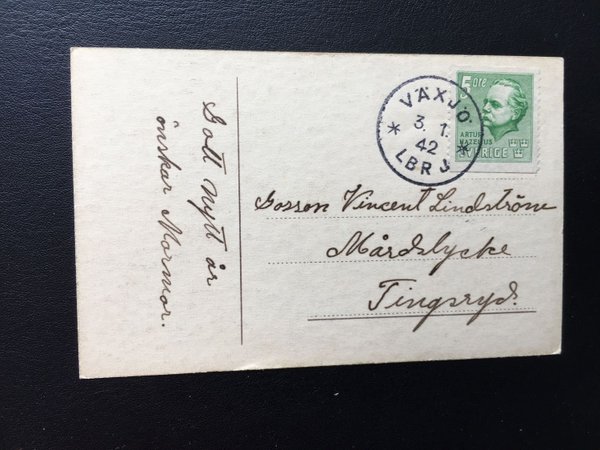 Gott nytt år
önskar Mormor.
VÄXJÖ
3. 1.
42
LBRJ
5 öre
ARTUR
HAZELIUS
SVERIGE
Gossen Vincent Lindström
Mårdslycke
Tingsryd.